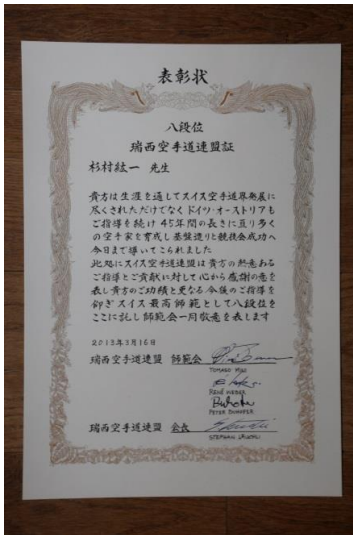 表彰状
八段位
瑞西空手道連盟証
杉村紘一 先生
貴方は生涯を通してスイス空手道界発展に
尽くされただけでなくドイツ・オーストリアも
ご指導を続け45年間の長きに亘り多く
の空手家を育成し基盤造りと競技会成功へ
今日まで導いてこられました
此処にスイス空手道連盟は貴方の熱意ある
ご指導とご貢献に対して心から感謝の意を
表し貴方のご功績と更なる今後のご指導を
仰ぎスイス最高師範として八段位を
ここに託し師範会一同敬意を表します
2013年3月16日
瑞西空手道連盟 師範会
RENÉ WEBER
PETER
瑞西空手道連盟 会長
STEPHAN